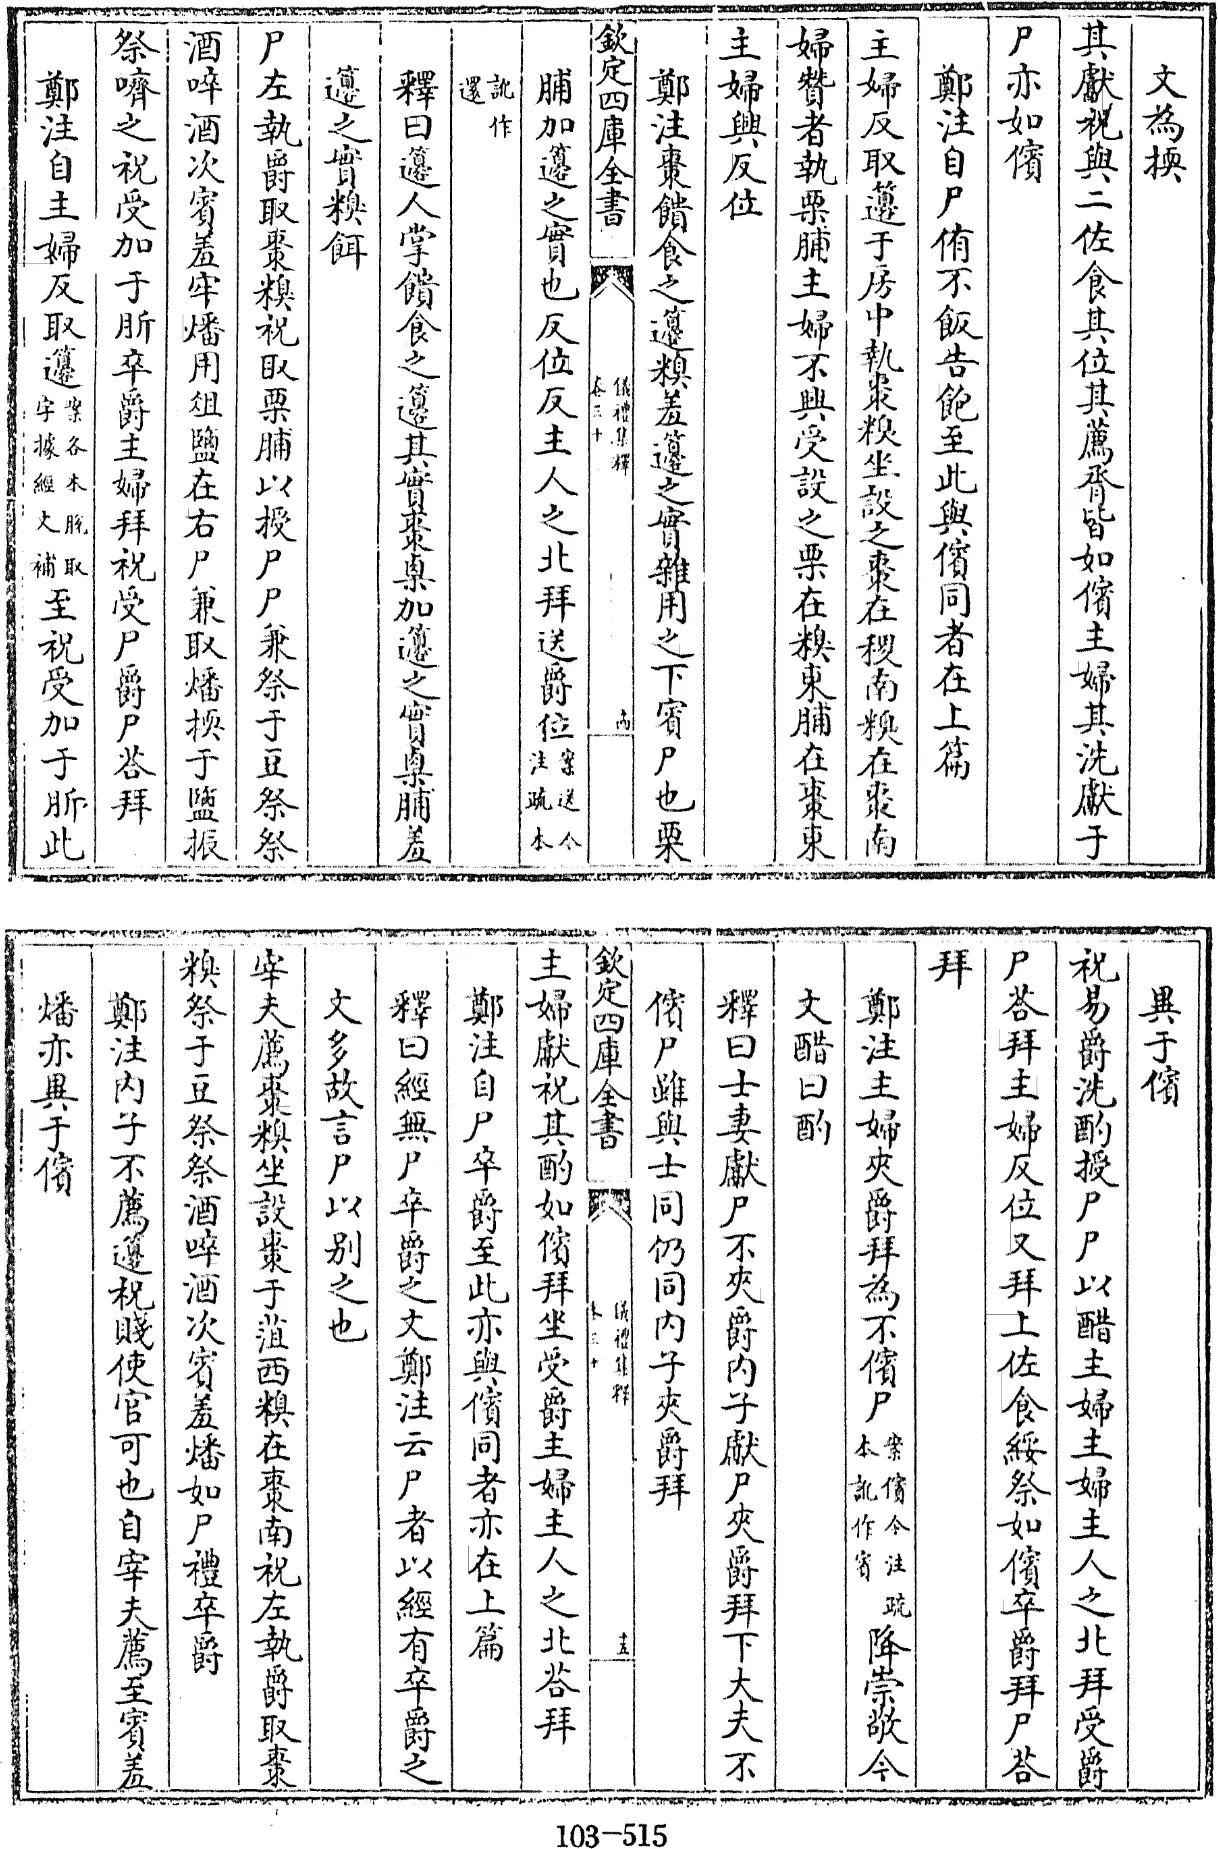 文為揳
其獻祝與二佐食其位其薦脀皆如儐主婦其洗獻于
尸亦如儐
鄭注自尸侑不飯告飽至此與儐同者在上篇
主婦反取籩于房中執棗糗坐設之棗在稷南糗在棗南
婦贊者執栗脯主婦不興受設之栗在糗東脯在棗東
主婦興反位
鄭注棗饋食之籩糗羞籩之實雜用之下賓尸也栗
欽定四庫全書
儀禮集釋
卷三十
脯加籩之實也反位反主人之北拜送爵位案送今注疏本
訛作還
釋曰籩人掌饋食之籩其實棗㮚加籩之實㮚脯羞
籩之實糗餌
尸左執爵取棗糗祝取栗脯以授尸尸兼祭于豆祭祭
酒啐酒次賓羞牢燔用俎鹽在右尸兼取燔揳于鹽振
祭嚌之祝受加于肵卒爵主婦拜祝受尸爵尸荅拜
鄭注自主婦反取籩案各本脫取字據經文補至祝受加于肵此
異于儐
祝易爵洗酌授尸尸以醋主婦主婦主人之北拜受爵
尸荅拜主婦反位又拜上佐食綏祭如儐卒爵拜尸荅
拜
鄭注主婦夾爵拜為不儐尸案儐今注疏本訛作賓降崇敬今
文醋曰酌
釋曰士妻獻尸不夾爵內子獻尸夾爵拜下大夫不
儐尸雖與士同仍同內子夾爵拜
欽定四庫全書
儀禮集釋
卷三十
十五
主婦獻祝其酌如儐拜坐受爵主婦主人之北荅拜
鄭注自尸卒爵至此亦與儐同者亦在上篇
釋曰經無尸卒爵之文鄭注云尸者以經有卒爵之
文多故言尸以别之也
宰夫薦棗糗坐設棗于菹西糗在棗南祝左執爵取棗
糗祭于豆祭祭酒啐酒次賓羞燔如尸禮卒爵
鄭注內子不薦籩祝賤使官可也自宰夫薦至賓羞
燔亦異于儐
103-515